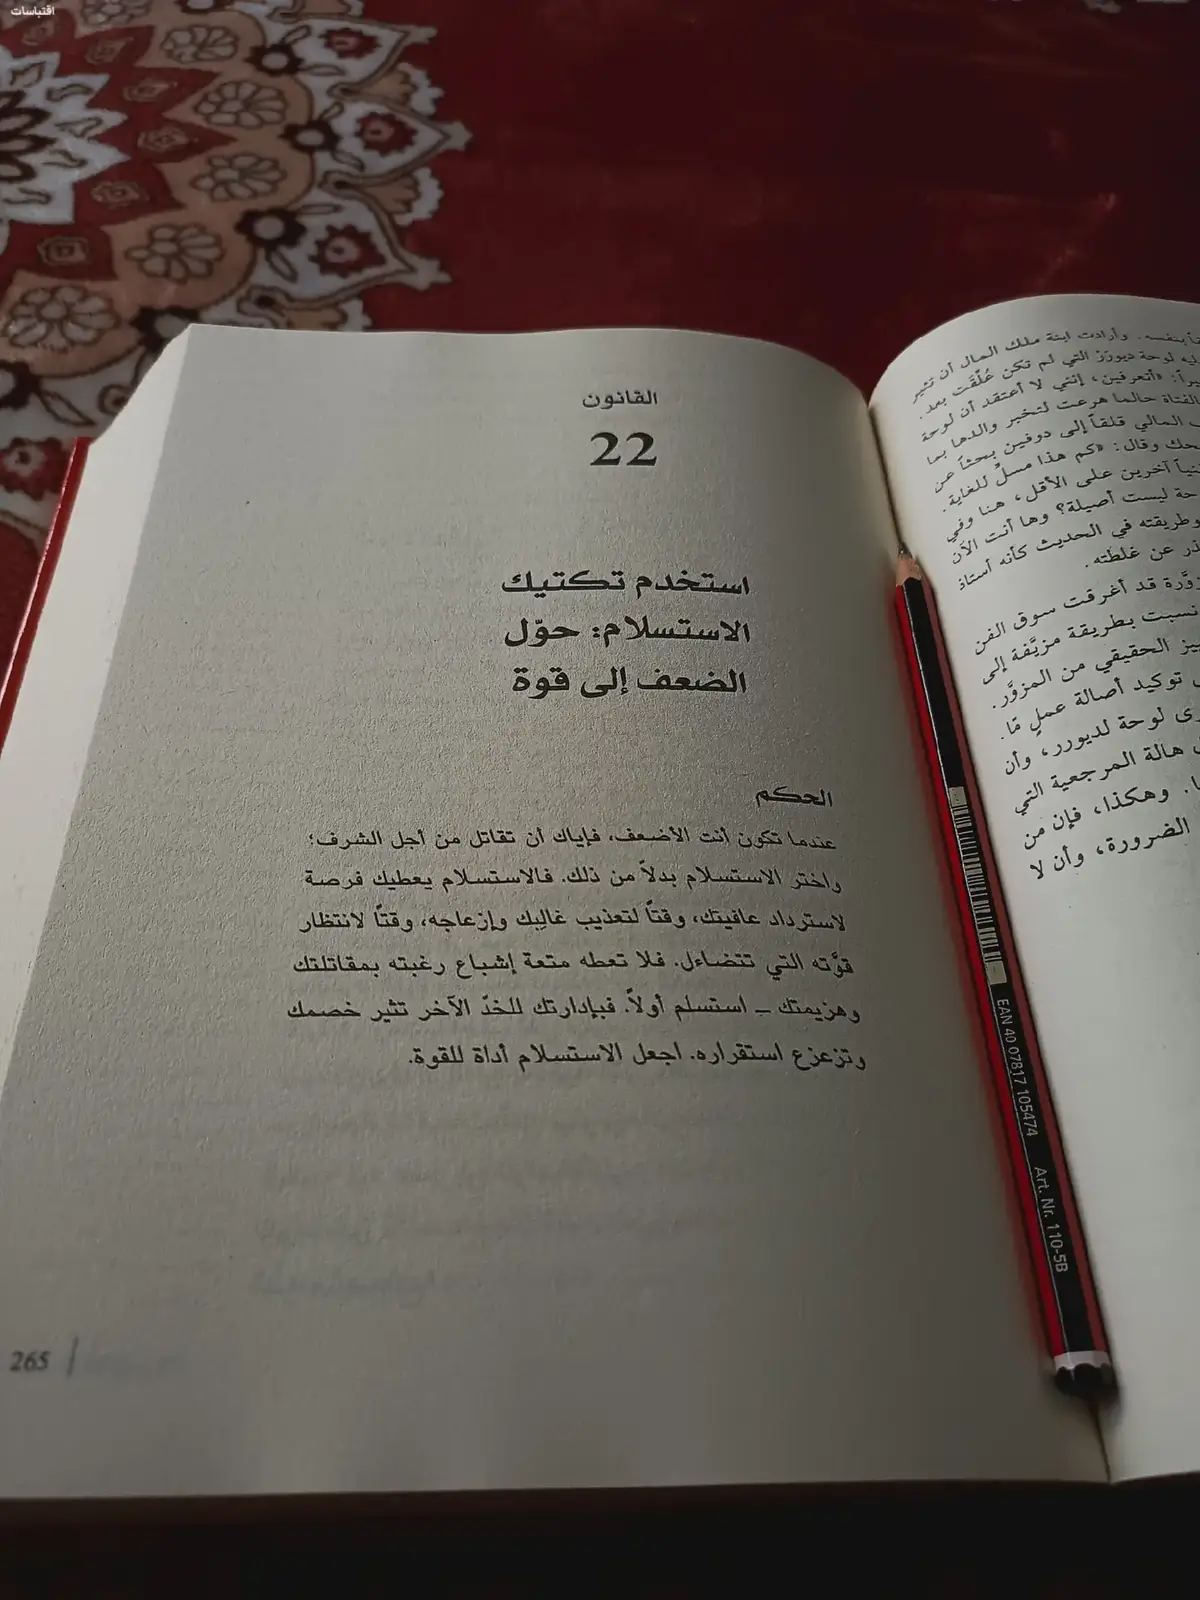 اقتباسات
بنفسه. وأرادت ابنة ملك المال أن تثير
ليه لوحة ديورَرْ التي لم تكن عُلّقَت بعد.
يراً: «أتعرفين، إنني لا أعتقد أن لوحة
الفتاة حالما هرعت لتخبر والدها بما
المالي قلقاً إلى دوفين بحثاً عن
حك وقال: «كم هذا مسلٍّ للغاية.
نياً آخرين على الأقل، هنا وفي
حة ليست أصيلة؟ وها أنت الآن
وطريقته في الحديث كأنه أستاذ
ذر عن غلطته.
زوَّرة قد أغرقت سوق الفن
نسبت بطريقة مزيَّفة إلى
ييز الحقيقي من المزوَّر.
توكيد أصالة عملٍ مّا.
رى لوحة لديورر، وأن
هالة المرجعية التي
ا. وهكذا، فإن من
الضرورة، وأن لا
القانون
22
استخدم تكتيك
الاستسلام: حوّل
الضعف إلى قوة
الحكم
عندما تكون أنت الأضعف، فإياك أن تقاتل من أجل الشرف؛
واختر الاستسلام بدلاً من ذلك. فالاستسلام يعطيك فرصة
لاسترداد عافيتك، وقتاً لتعذيب غالِبك وإزعاجه، وقتاً لانتظار
قوَّته التي تتضاءل. فلا تعطه متعة إشباع رغبته بمقاتلتك
وهزيمتك ــ استسلم أولاً. فبإدارتك للخدّ الآخر تثير خصمك
وتزعزع استقراره. اجعل الاستسلام أداة للقوة.
265
EAN 40 07817 105474 Art. Nr. 110-5B